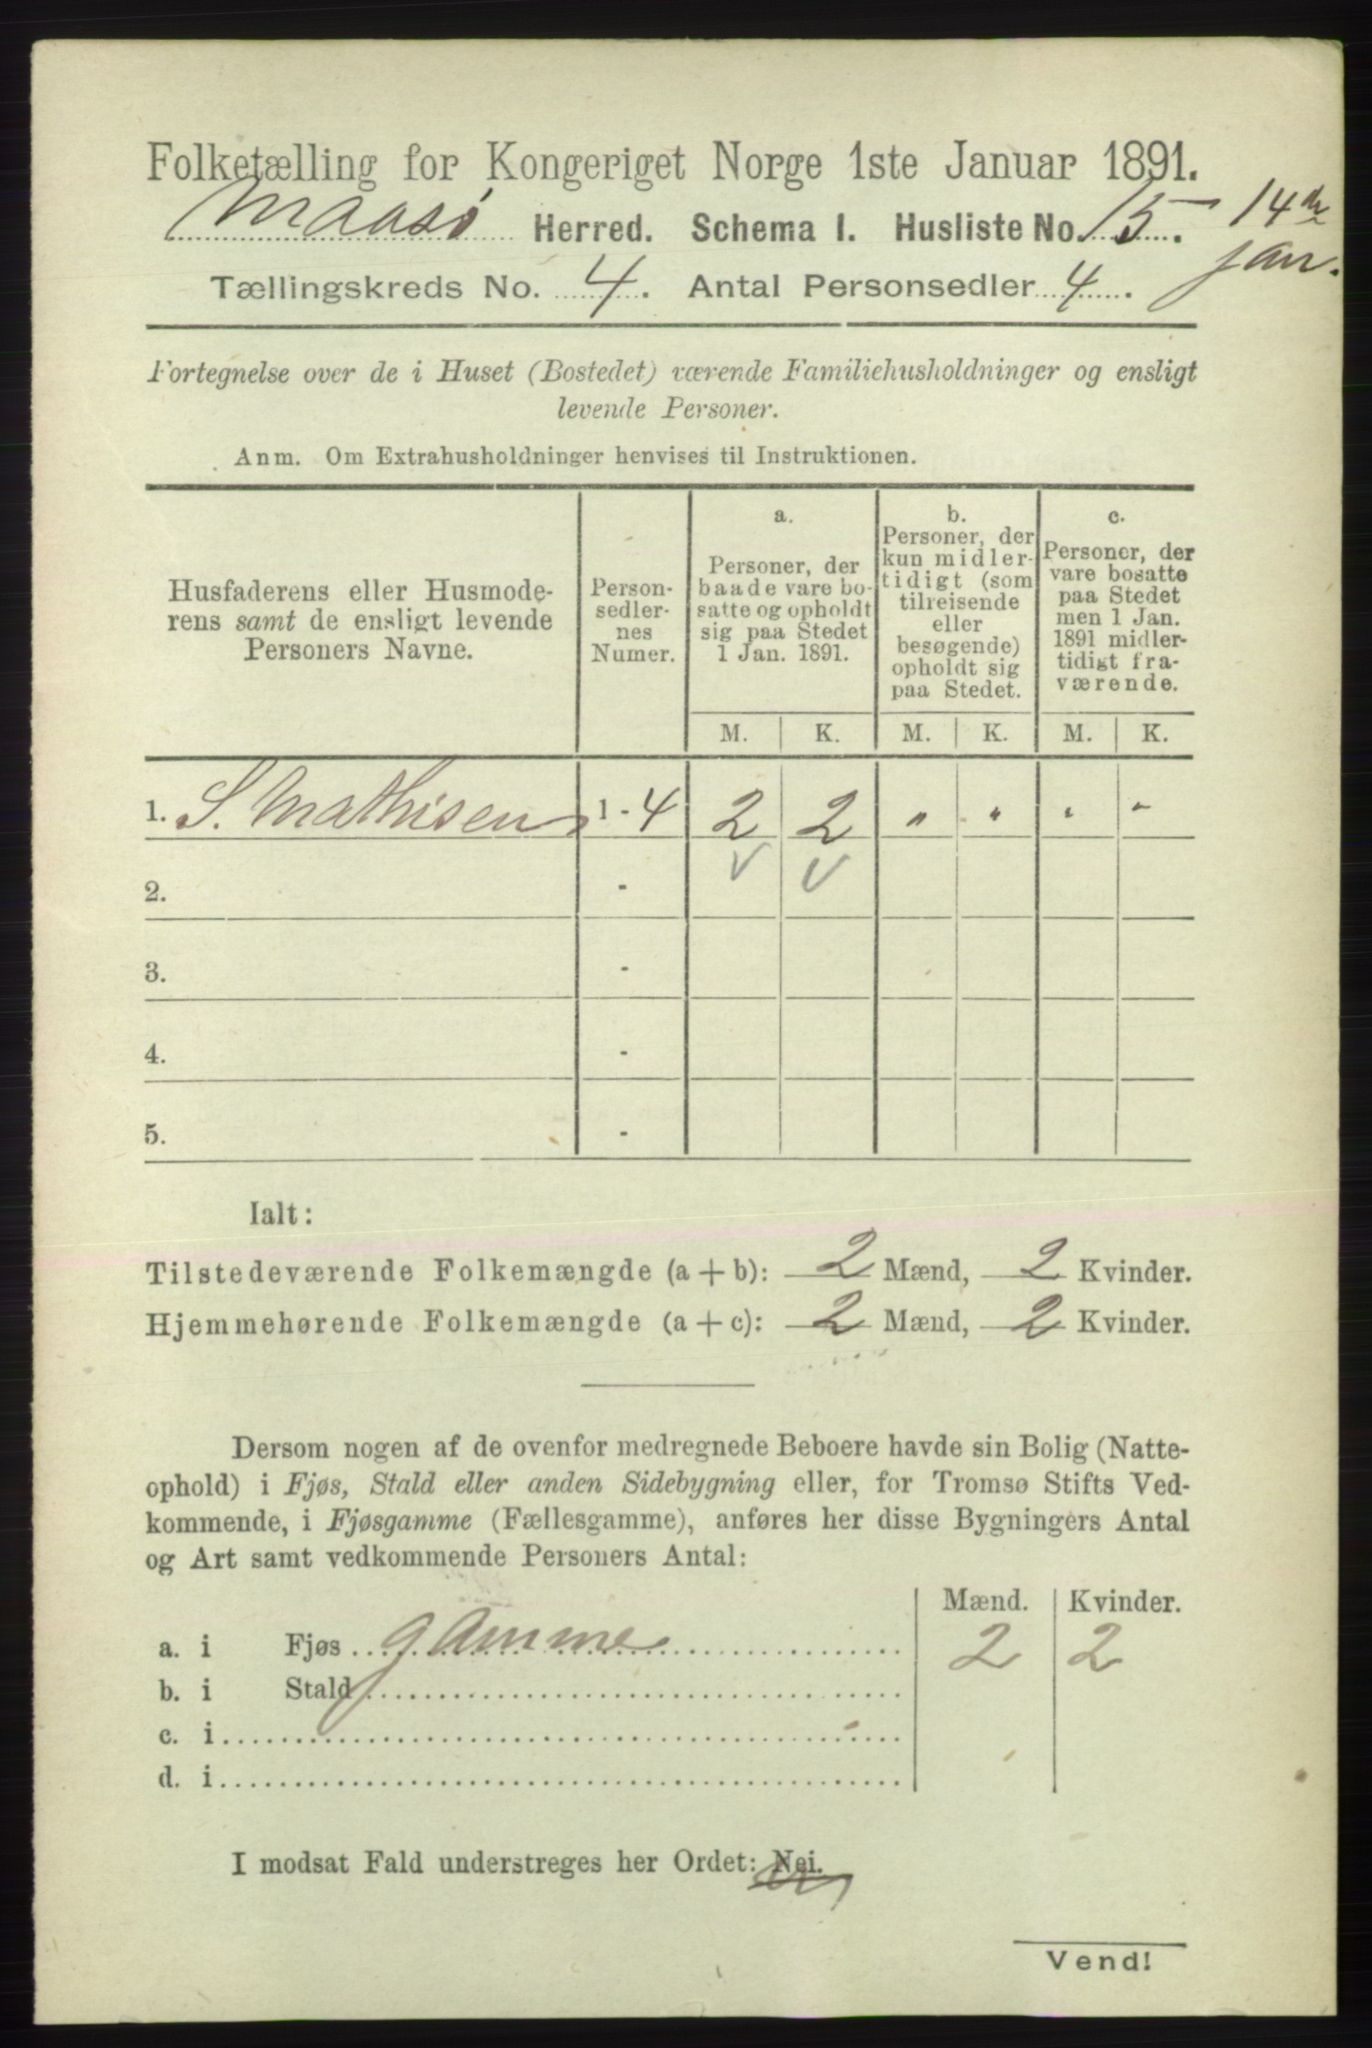 Folketælling for Kongeriget Norge 1ste Januar 1891.
Maasø Herred. Schema I. Husliste No. 15. 14de
Jan.
Tællingskreds No. 4. Antal Personsedler 4.
Fortegnelse over de i Huset (Bostedet) værende Familiehusholdninger og ensligt
levende Personer.
Anm. Om Extrahusholdninger henvises til Instruktionen.
Husfaderens eller Husmode-
rens samt de ensligt levende
Personers Navne.
Person-
sedler-
nes
Numer.
a.
Personer, der
baade vare bo-
satte og opholdt
sig paa Stedet
1 Jan. 1891.
b.
Personer, der
kun midler-
tidigt (som
tilreisende
eller
besøgende)
opholdt sig
paa Stedet.
c.
Personer, der
vare bosatte
paa Stedet
men 1 Jan.
1891 midler-
tidigt fra-
værende.
M. K. M. K. M. K.
1. S. Mathisen 1 - 4 2 2 " " " "
2. -
3. -
4. -
5. -
Ialt:
Tilstedeværende Folkemængde (a + b): 2 Mænd, 2 Kvinder.
Hjemmehørende Folkemængde (a + c): 2 Mænd, 2 Kvinder.
Dersom nogen af de ovenfor medregnede Beboere havde sin Bolig (Natte-
ophold) i Fjøs, Stald eller anden Sidebygning eller, for Tromsø Stifts Ved-
kommende, i Fjøsgamme (Fællesgamme), anføres her disse Bygningers Antal
og Art samt vedkommende Personers Antal:
Mænd. Kvinder.
a. i Fjøs gamme 2 2
b. i Stald
c. i
d. i
I modsat Fald understreges her Ordet: Nei.
Vend!